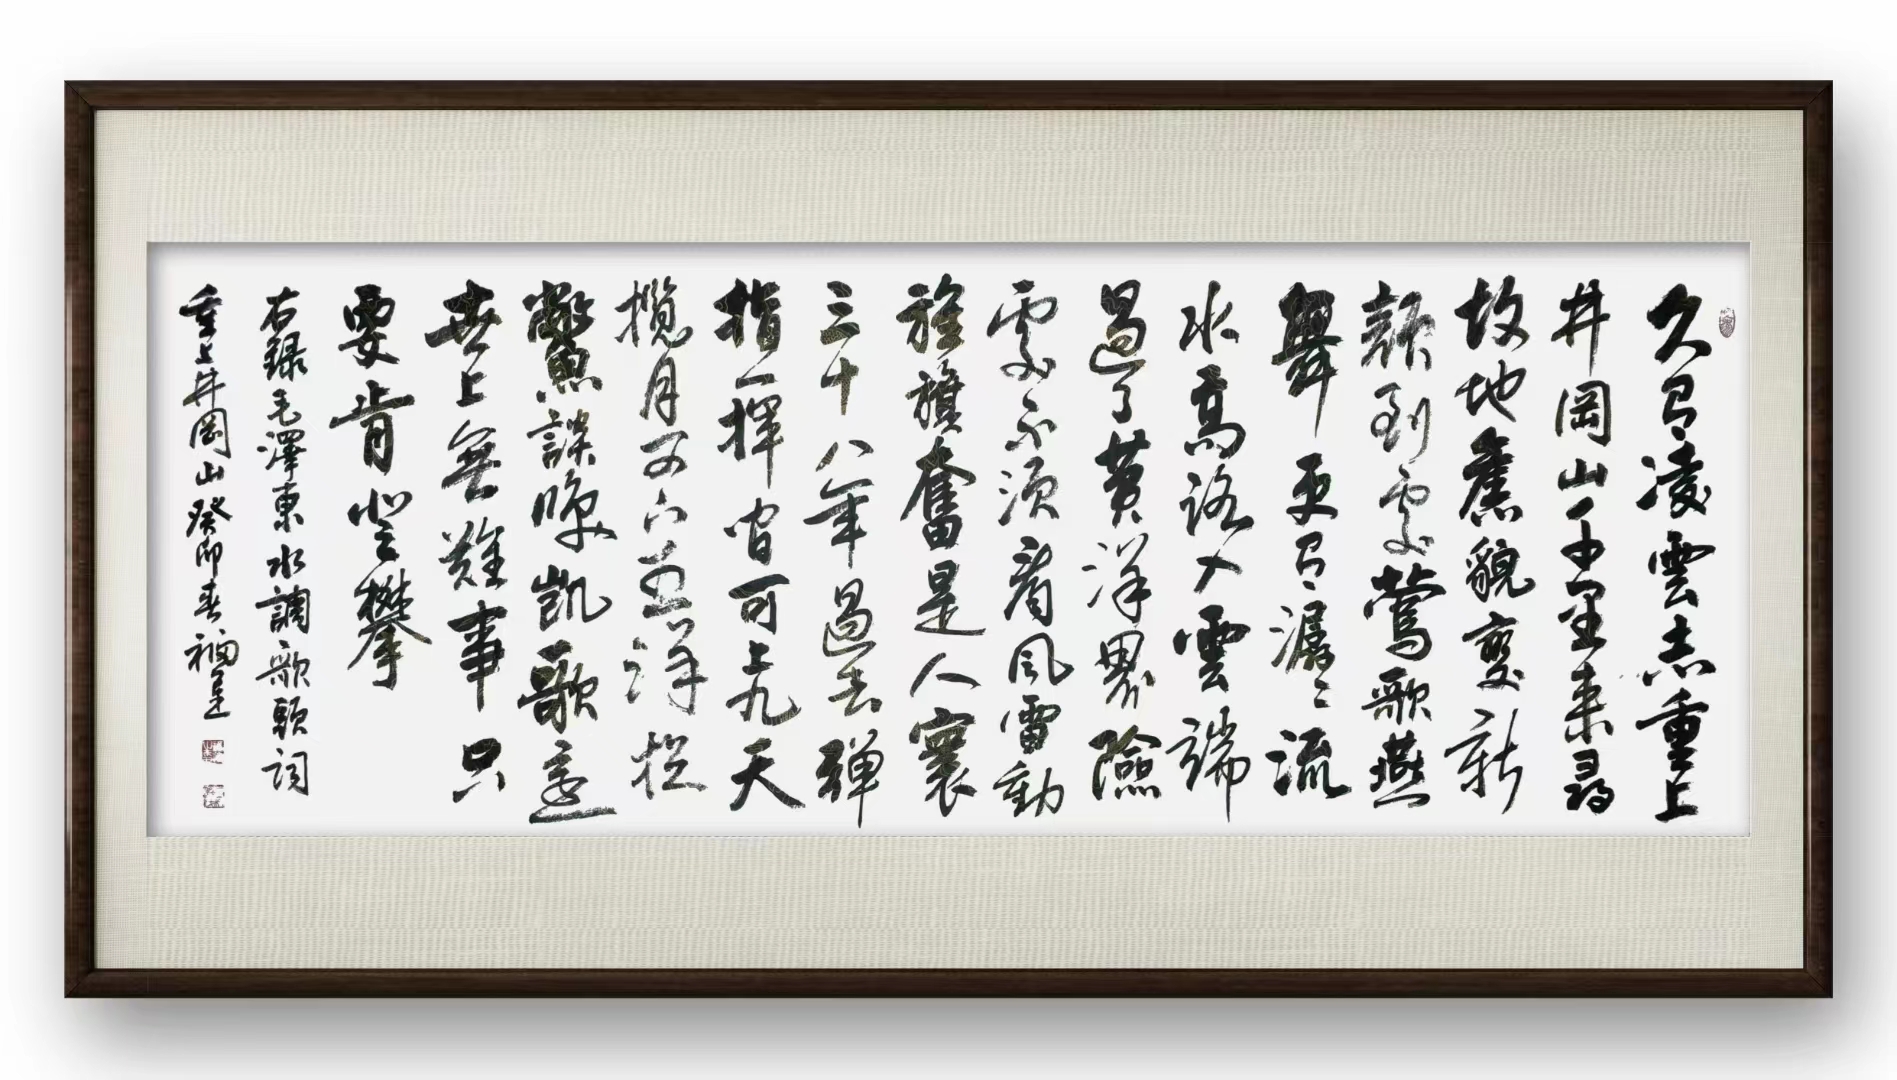 久有凌雲志重上
井岡山千里來尋
故地舊貌變新
顏到處鶯歌燕
舞更有潺〻流
水高路入雲端
過了黃洋界險
處不須看風雷動
旌旗奮是人寰
三十八年過去彈
指一揮間可上九天
攬月可下五洋捉
鱉談笑凱歌還
世上無難事只
要肯登攀
右録毛澤東水調歌頭詞
重上井岡山癸卯春福